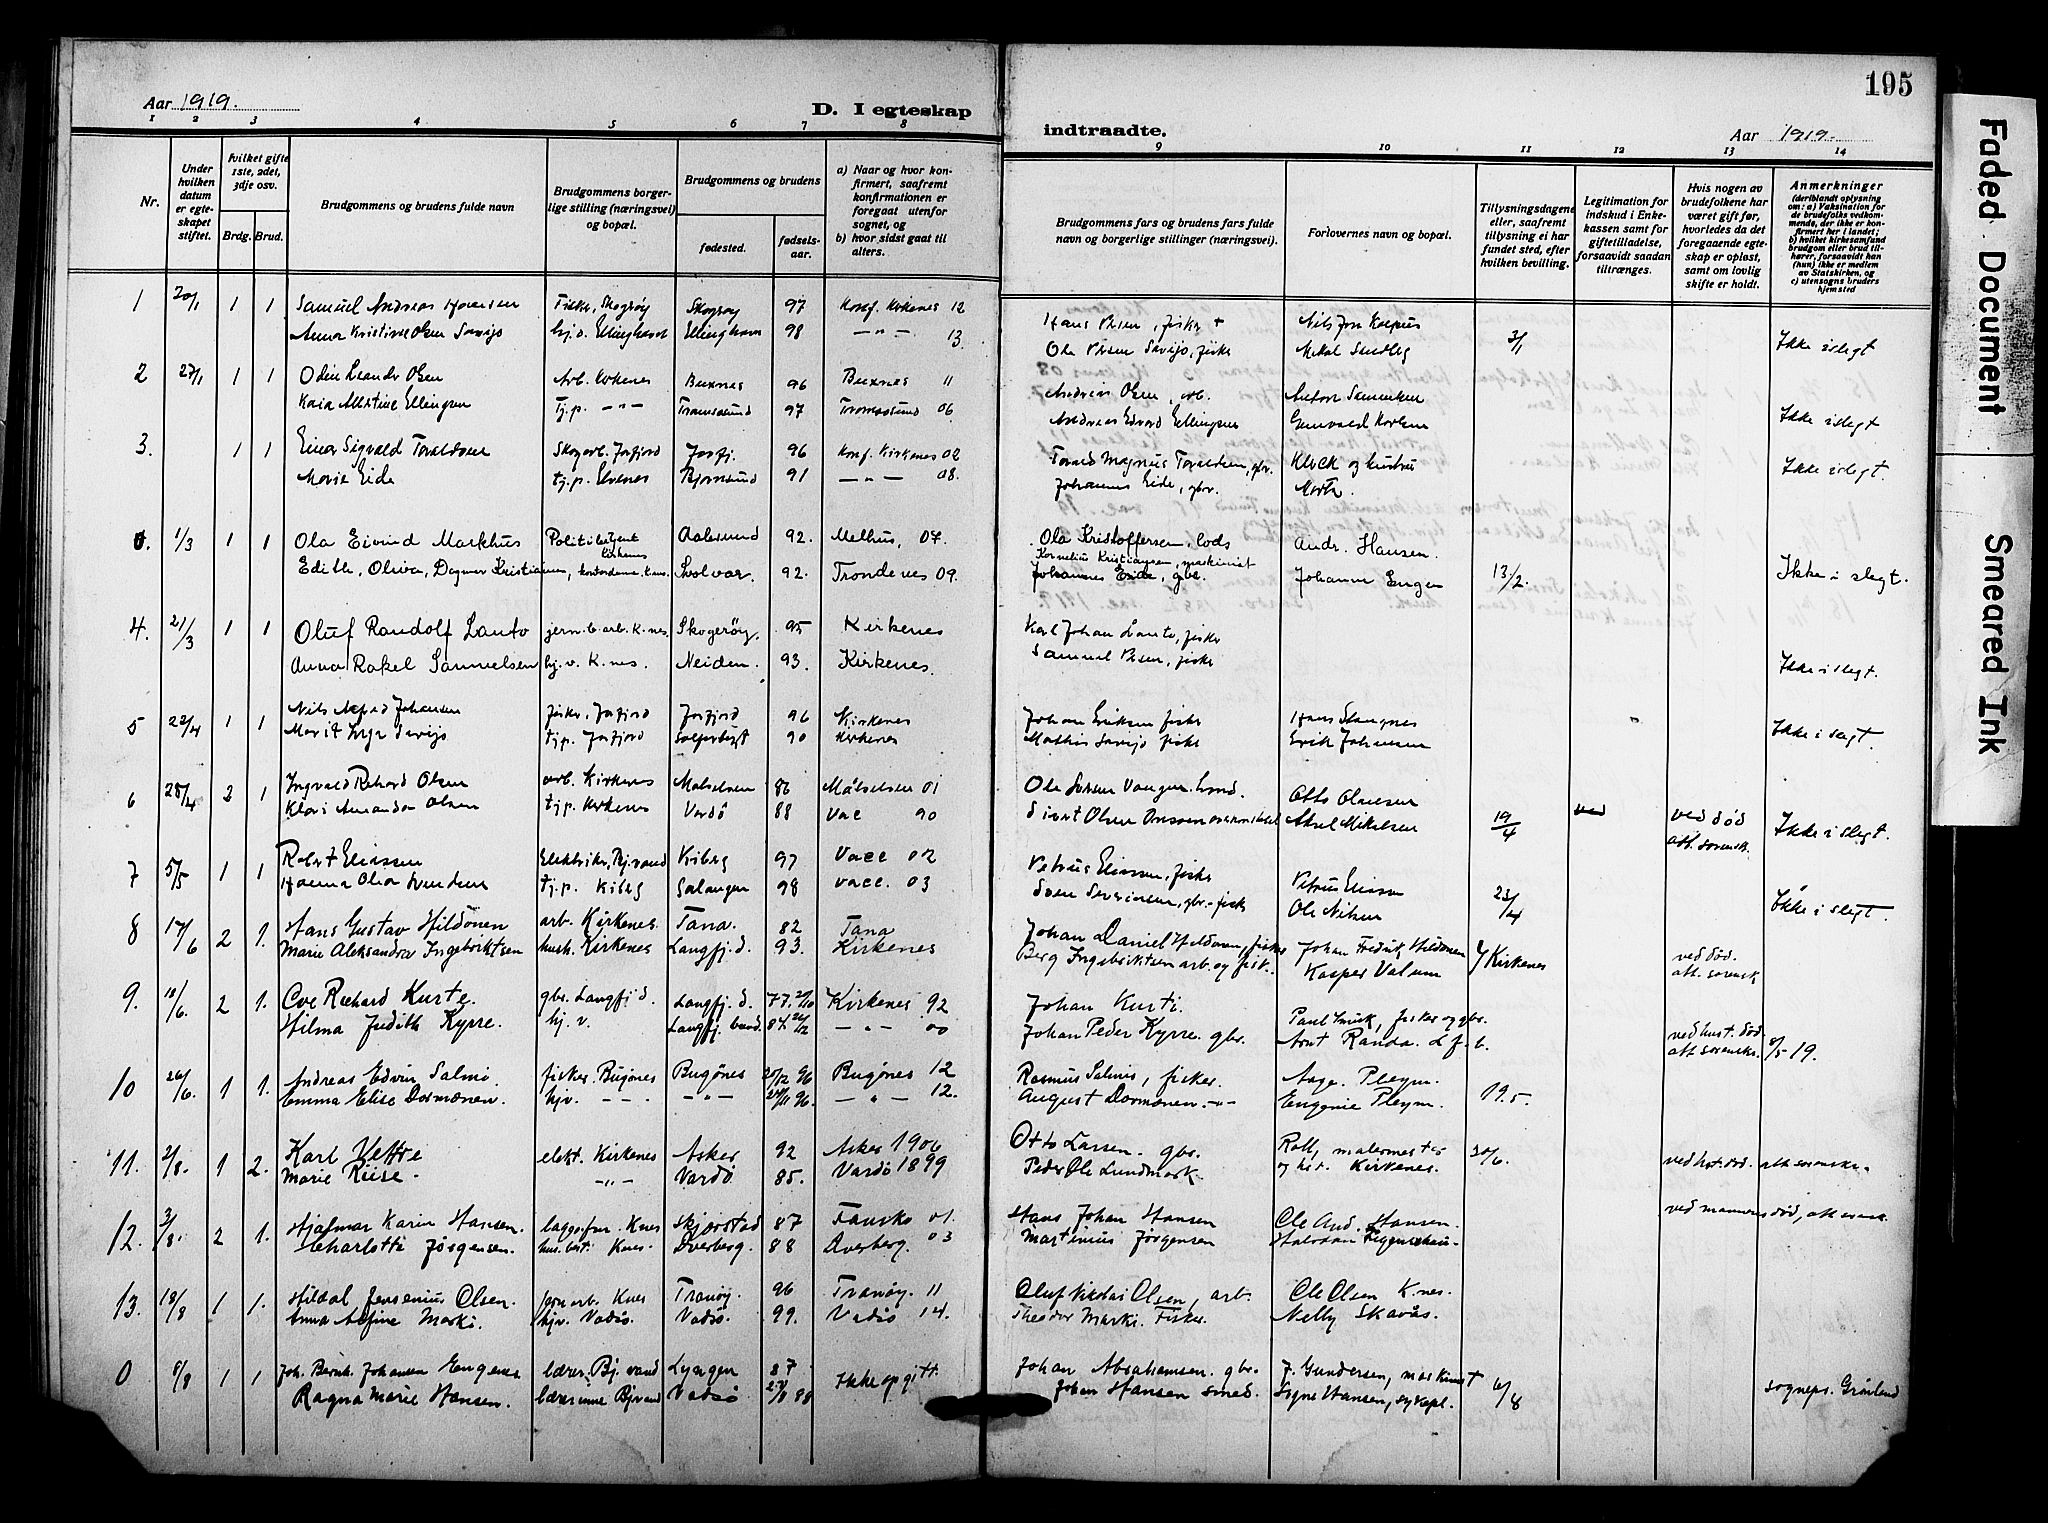 Aar 1919.
D. I egteskap
1 2 3 4 5 6 7 8
Nr.
Under hvilken datum er egteskapet stiftet.
hvilket gifte 1ste, 2det, 3dje osv.
Brdg. Brud.
Brudgommens og brudens fulde navn
Brudgommens borgerlige stilling (næringsvei) og bopæl.
Brudgommens og brudens
fødested.
fødselsaar.
a) Naar og hvor konfirmert, saafremt konfirmationen er foregaat utenfor sognet, og
b) hvor sidst gaat til alters.
1 20/1 1 1 Samuel Andreas Hansen Fisker, Skogerøy Skogerøy 97 Konf. Kirkenes 12
Anna Kristine Olsen Savijo hj.d. Ellinghavn Ellinghavn 98 — " — 13.
2 27/1 1 1 Odin Leandr Olsen Arb. Kirkenes Buxnes 96 Buxnes 11
Kaia Albertine Ellingsen Tj.p. — " — 97 06
3. 1 1 Einar Sigvald Toraldsen Skogarb. Jarfjord Jarfj. 96 Konf. Kirkenes 02
Marie Eide tj.p. Elvenes Bjørnsund 91 — " — 08.
0. 1/3 1 1 Ola Eivind Markhus Politibetjent Kirkenes Aalesund 92. Melhus, 07.
Edith, Oliva, Dagmar Kristiansen, Svolvær. 92. Trondenes 09.
4. 21/3 1 1 Oluf Randolf Lanto jern.b.arb. K.nes. Skogerøy. 95 Kirkenes
Anna Rakel Samuelsen hj.v. K.nes. Neiden. 93. Kirkenes.
5 22/4 1 1 Nils Alfred Johansen fisker, Jarfjord Jarfjord 96 Kirkenes
Marit Inga Savijo tj.p. Jarfjord 90 Kirkenes
6 25/4 2 1 Ingvald Rikard Olsen arb. Kirkenes Maalselven 86 Målselven 01
Klara Amanda Olsen tj.p. Kirkenes Vardø 88 Vac 90
7 5/5 1 1 Robert Eliassen Elektriker, Bj.vand Kiberg 97 Vacc 02
Hanna Olea Svendsen tj.p. Kiberg Salangen 98 vacc. 03
8 17/6 2 1. Hans Gustav Hildonen arb. Kirkenes. Tana. 82 Tana
Marie Aleksandra Ingebriktsen hush. Kirkenes Langfj.d. 93. Kirkenes
9. 18/6 2 1. Ove Richard Kurte. gbr. Langfj.d. Langfj.d. 77. 2/10 Kirkenes 92
Hilma Judith Kyrre. hj.v. Langfj.bund. 84. — " — 00
10 26/6 1 1. Andreas Edvin Salmi fisker Bugønes Bugønes 20/12 96 Bugønes 12
Emma Elise Dørmænen. hjv. — " — — " — 96. — " — 12.
11. 2/8. 1 2. Karl Vettre elekt. Kirkenes Asker 92 Asker 1906
Marie Riise. — " — Vardø 85. Vardø 1899
12. 3/8. 2 1. Hjalmar Karin Hansen. Knes Skjærstad 87 Fauske 01.
Charlotte Jørgensen. Knes. Dverberg. 88 Dverberg. 03
13. 18/8 1 1. Hildal Jensenius Olsen. jernarb. Knes Tranøy. 96 Tranøy 11
Anna Alfine Marki. hjv. Vadsø. Vadsø. 99. Vadsø 14.
0 9/8 1 1 Joh. Bernh. Johansen Engenes lærer. Bj.vand Lyngen 87 Ikke opgitt.
Ragna Marie Hansen. lærerinne Bj.vand Vadsø 88
195
indtraadte.
Aar 1919.
9 10 11 12 13 14
Brudgommens fars og brudens fars fulde navn og borgerlige stillinger (næringsvei).
Forlovernes navn og bopæl.
Tillysningsdagene eller, saafremt tillysning ei har fundet sted, efter hvilken bevilling.
Legitimation for indskud i Enkekassen samt for giftetilladelse, forsaavidt saadan tiltrænges.
Hvis nogen av brudefolkene har været gift før, hvorledes da det foregaaende egteskap er opløst, samt om lovlig skifte er holdt.
Anmerkninger (deriblandt oplysning om: a) Vaksination for de brudefolks vedkommende, der ikke er konfirmert her i landet; b) hvilket kirkesamfund brudgom eller brud tilhører, forsaavidt han (hun) ikke er medlem av Statskirken, og c) utensogns bruders hjemsted
Hans Olsen, fisker + Nils Jon Kaspus 3/1 Ikke i slegt
Ole Olsen Savijo, fisker Mikal Sundby
Andreas Olsen, arb. Anton Samuelsen Ikke i slegt
Andreas Edvard Ellingsen
Torald Magnus Toraldsen, gbr. Klock og hustru Ikke i slegt.
Johannes Eide, gbr.
Ola Kristoffersen, lods Andr. Hansen.
Kornelius Kristiansen, maskinist
Johannes Eide, gbr. Johanne Engen 13/2. Ikke i slegt.
Karl Johan Lanto, fisker
Samuel Olsen, fisker Ikke i slegt.
Johan Eriksen fisker Hans Stangnes
Mathis Savijo fisker Erik Johansen Ikke i slegt.
Otto Olausen
Aksel Mikalsen 19/4 ved ved død att. sorensk. Ikke i slegt.
Petrus Eliassen, fisker Petrus Eliassen
Sven Severinsen, gbr.-fisker Ole Nilsen 23/4 Ikke i slegt.
Johan Daniel Hildonen, fisker Johan Fredrik Hildonen i/Kirkenes ved død.
Berg Ingebriktsen arb. og fisk. Kasper Valum att. sorensk
Johan Kurti Paul Smuk, fisker og gbr. ved hust. død.
Johan Peder Kyrre. gbr. Arnt Randa. L.f.b. att. sorenskr. 8/5 19.
Rasmus Salmis, fisker. Aage. Pleym.
August Dørmænen. — " — Eugenie Pleym. 19.5.
Otto Larsen. gbr. Roll, malermester 30/6. ved hst. død. att. sorenskr.
Peder Ole Lundmark og hst. Kirkenes.
ved mannens død, att. sorensk.
Hans Johan Hansen Ole And. Hansen.
Martinius Jørgensen
Oluf Nikolai Olsen, arb. Ole Olsen K.nes.
Theodor Marki. Fisker. Nelly Skavås.
Johan Abrahamsen. gbr. J. Gundersen, maskinist
Johan Hansen smed. Signe Hansen, sykepl. 6/8 sognepr. Grønlund
Faded Document
Smeared Ink